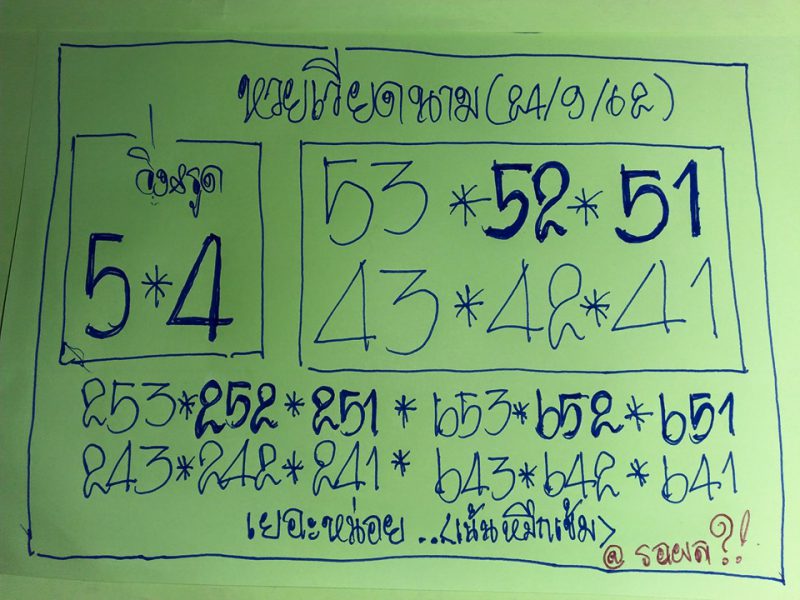 หวยเวียดนาม (24/9/62)
วิ่งรูด
5*4
53*52*51
43*42*41
253*252*251* 653*652*651
243*242*241* 643*642*641
เยอะหน่อย..<เน้นหมึกเข้ม>
@ รอผล?!